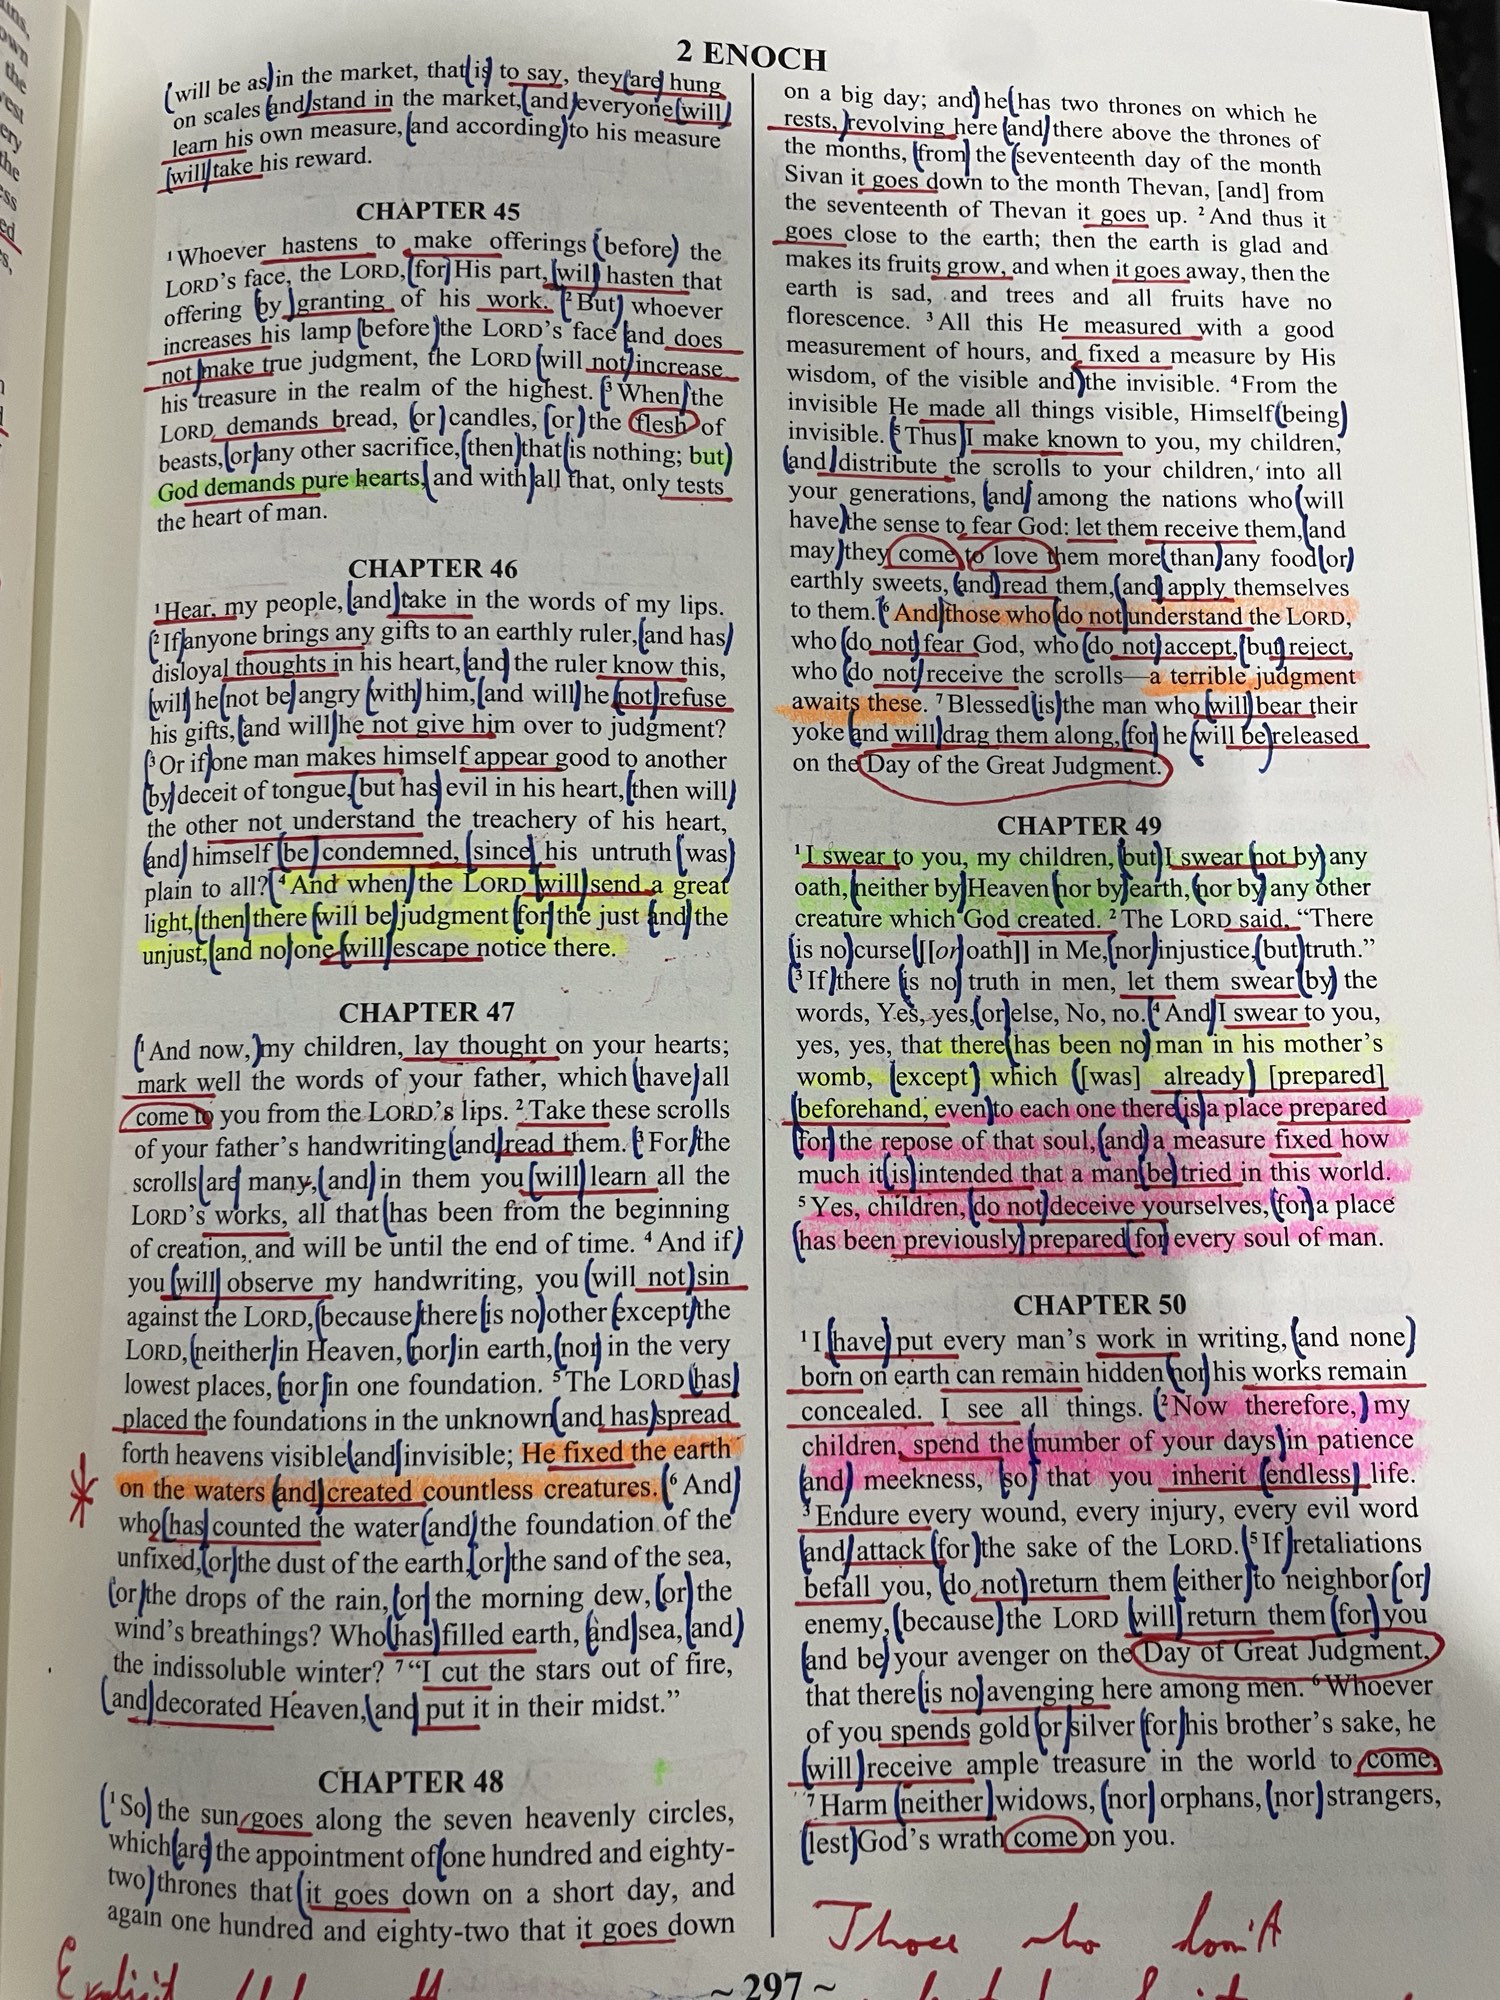 2 ENOCH
will be as in the market, that is to say, they are hung
on scales and stand in the market, and everyone will
learn his own measure, and according to his measure
will take his reward.
CHAPTER 45
1 Whoever hastens to make offerings before the
LORD’S face, the LORD, for His part, will hasten that
offering by granting of his work. 2 But whoever
increases his lamp before the LORD’S face and does
not make true judgment, the LORD will not increase
his treasure in the realm of the highest. 3 When the
LORD demands bread, or candles, or the flesh of
beasts, or any other sacrifice, then that is nothing; but
God demands pure hearts, and with all that, only tests
the heart of man.
CHAPTER 46
1 Hear, my people, and take in the words of my lips.
2 If anyone brings any gifts to an earthly ruler, and has
disloyal thoughts in his heart, and the ruler know this,
will he not be angry with him, and will he not refuse
his gifts, and will he not give him over to judgment?
3 Or if one man makes himself appear good to another
by deceit of tongue, but has evil in his heart, then will
the other not understand the treachery of his heart,
and himself be condemned, since his untruth was
plain to all? 4 And when the LORD will send a great
light, then there will be judgment for the just and the
unjust, and no one will escape notice there.
CHAPTER 47
1 And now, my children, lay thought on your hearts;
mark well the words of your father, which have all
come to you from the LORD’S lips. 2 Take these scrolls
of your father’s handwriting and read them. 3 For the
scrolls are many, and in them you will learn all the
LORD’S works, all that has been from the beginning
of creation, and will be until the end of time. 4 And if
you will observe my handwriting, you will not sin
against the LORD, because there is no other except the
LORD, neither in Heaven, nor in earth, nor in the very
lowest places, nor in one foundation. 5 The LORD has
placed the foundations in the unknown and has spread
forth heavens visible and invisible; He fixed the earth
on the waters and created countless creatures. 6 And
who has counted the water and the foundation of the
unfixed, or the dust of the earth, or the sand of the sea,
or the drops of the rain, or the morning dew, or the
wind’s breathings? Who has filled earth, and sea, and
the indissoluble winter? 7 “I cut the stars out of fire,
and decorated Heaven, and put it in their midst.”
CHAPTER 48
1 So the sun goes along the seven heavenly circles,
which are the appointment of one hundred and eighty-
two thrones that it goes down on a short day, and
again one hundred and eighty-two that it goes down
on a big day; and he has two thrones on which he
rests, revolving here and there above the thrones of
the months, from the seventeenth day of the month
Sivan it goes down to the month Thevan, [and] from
the seventeenth of Thevan it goes up. 2 And thus it
goes close to the earth; then the earth is glad and
makes its fruits grow, and when it goes away, then the
earth is sad, and trees and all fruits have no
florescence. 3 All this He measured with a good
measurement of hours, and fixed a measure by His
wisdom, of the visible and the invisible. 4 From the
invisible He made all things visible, Himself being
invisible. 5 Thus I make known to you, my children,
and distribute the scrolls to your children, into all
your generations, and among the nations who will
have the sense to fear God: let them receive them, and
may they come to love them more than any food or
earthly sweets, and read them, and apply themselves
to them. 6 And those who do not understand the LORD,
who do not fear God, who do not accept, but reject,
who do not receive the scrolls—a terrible judgment
awaits these. 7 Blessed is the man who will bear their
yoke and will drag them along, for he will be released
on the Day of the Great Judgment.
CHAPTER 49
1 I swear to you, my children, but I swear not by any
oath, neither by Heaven nor by earth, nor by any other
creature which God created. 2 The LORD said, “There
is no curse [[or oath]] in Me, nor injustice, but truth.”
3 If there is no truth in men, let them swear by the
words, Yes, yes, or else, No, no. 4 And I swear to you,
yes, yes, that there has been no man in his mother’s
womb, except which [was] already [prepared]
beforehand, even to each one there is a place prepared
for the repose of that soul, and a measure fixed how
much it is intended that a man be tried in this world.
5 Yes, children, do not deceive yourselves, for a place
has been previously prepared for every soul of man.
CHAPTER 50
1 I have put every man’s work in writing, and none
born on earth can remain hidden nor his works remain
concealed. I see all things. 2 Now therefore, my
children, spend the number of your days in patience
and meekness, so that you inherit endless life.
3 Endure every wound, every injury, every evil word
and attack for the sake of the LORD. 5 If retaliations
befall you, do not return them either to neighbor or
enemy, because the LORD will return them for you
and be your avenger on the Day of Great Judgment,
that there is no avenging here among men. 6 Whoever
of you spends gold or silver for his brother’s sake, he
will receive ample treasure in the world to come.
7 Harm neither widows, nor orphans, nor strangers,
lest God’s wrath come on you.
Those who don't
Explicit
~ 297 ~